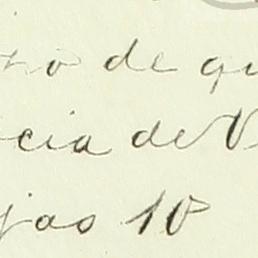 no de qu
cia de V
jao 10